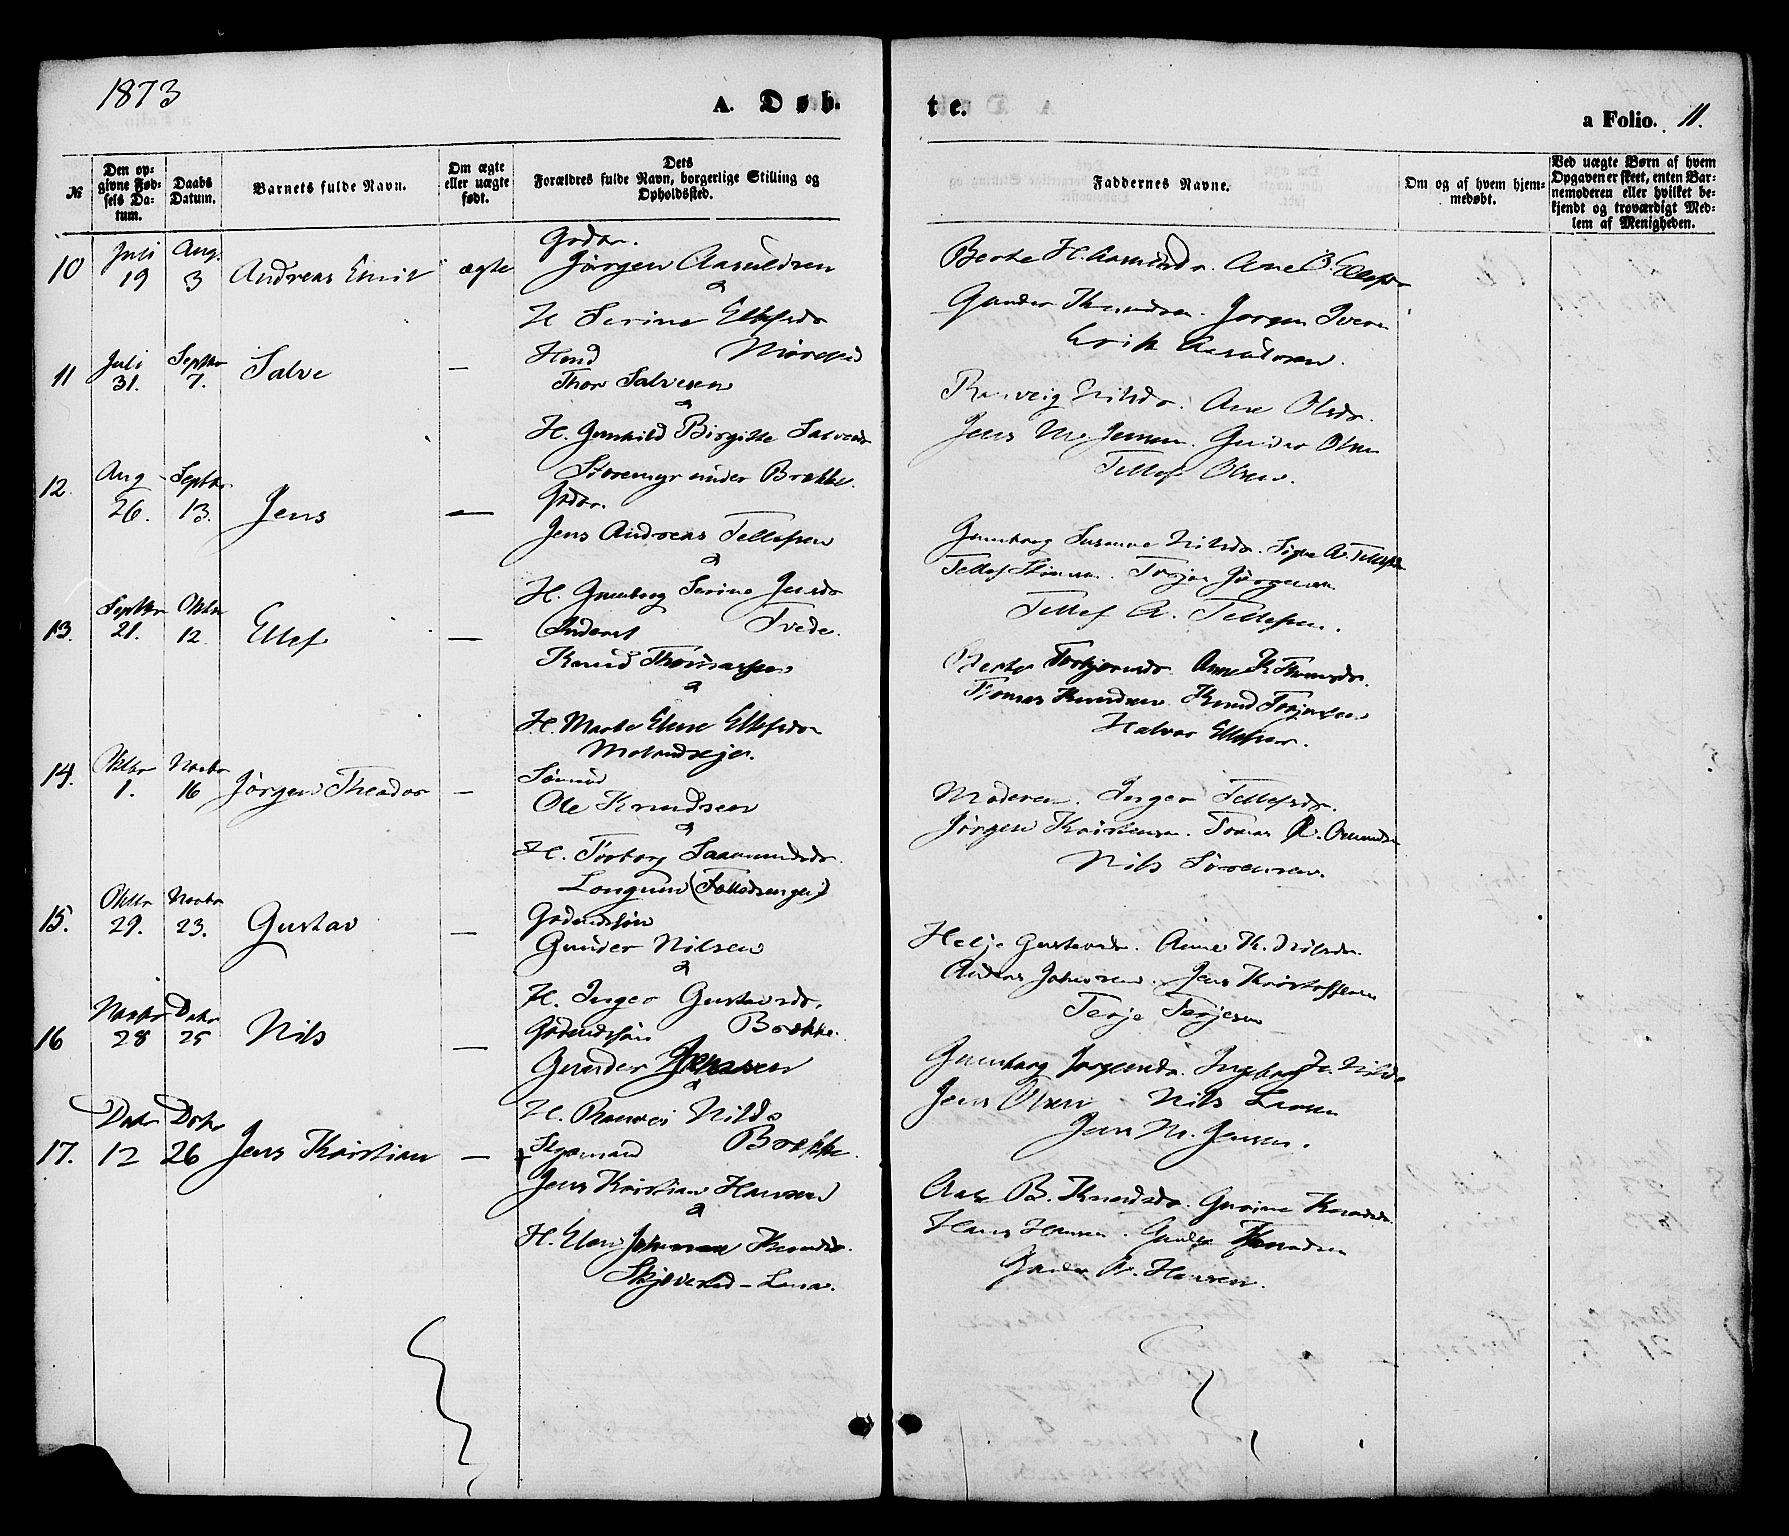 1873
A. Døb-
te.
a Folio. 11.
№
Den op-
givne Fød-
sels Da-
tum.
Daabs
Datum.
Barnets fulde Navn.
Om ægte
eller uægte
født.
Dets
Forældres fulde Navn, borgerlige Stilling og
Opholdssted.
Faddernes Navne.
Om og af hvem hjem-
medøbt.
Ved uægte Børn af hvem
Opgaven er skeet, enten Bar-
nemoderen eller hvilket be-
kjendt og troværdigt Med-
lem af Menigheden.
10 Juli 19 Aug. 3 Andreas Emil ægte
Jørgen Aasuldsen
H Serine Ellefsdr
11 Juli 31. Septbr 7. Salve —
Thor Salvesen
H. Gunhild Birgitte Salvesdr
Storemyr under Brække.
Ranveig Nilsdr. Ane Olsdr.
Jens M. Jensen. Gunder Olsen
Tellef Olsen.
12. Aug 26. Septbr. 13. Jens —
Gdbr.
Jens Andreas Tellefsen
H. Gunborg Serine Jensdr
Tvede.
Gunborg Susanne Nilsdr. Signe A. Tellefsdr
Terjer Jørgensen
Tellef A. Tellefsen.
13. Septbr 21. Oktbr 12. Ellef —
Inderst
Knud Thomassen
H. Marte Elene Ellefsdr
Berte Torbjørnsdr. Anne K. Thomsdr.
Thomas Knudsen Knud Torjersen
Halvor Ellefsen.
14. Oktbr 1. Novbr 16 Jørgen Theodor —
Sømand
Ole Knudsen
H. Torborg Saamundsdr.
Longum
Moderen. Inger Tellefsdr.
Jørgen Kristensen. Tomas
Nils Sørensen.
15. Oktbr 29. Novbr 23. Gustav —
Gdmdssøn
Gunder Nilsen
H. Inger Gustavsdr.
Brække.
Helje Gustavsdr. Anne K. Nilsdr.
Anders Johnsen. Jens Kristoffersen
Terje Terjesen
16 Novbr 28 Decbr 25 Nils —
Gunder Jensen
H. Ranvei Nilsdr
Brække.
Gunborg Jørgensdr. Ingeborg
Jens Olsen. Nils Larsen
Jens M. Jensen.
17. Decbr 12 Decbr 26 Jens Kristian —
Jens Kristian Hansen
H. Elen Johanne Knudsdr.
Aase B. Knudsdr. Gurine Knudsdr.
Hans Hansen. Gunder Knudsen
Gunder A. Hansen.